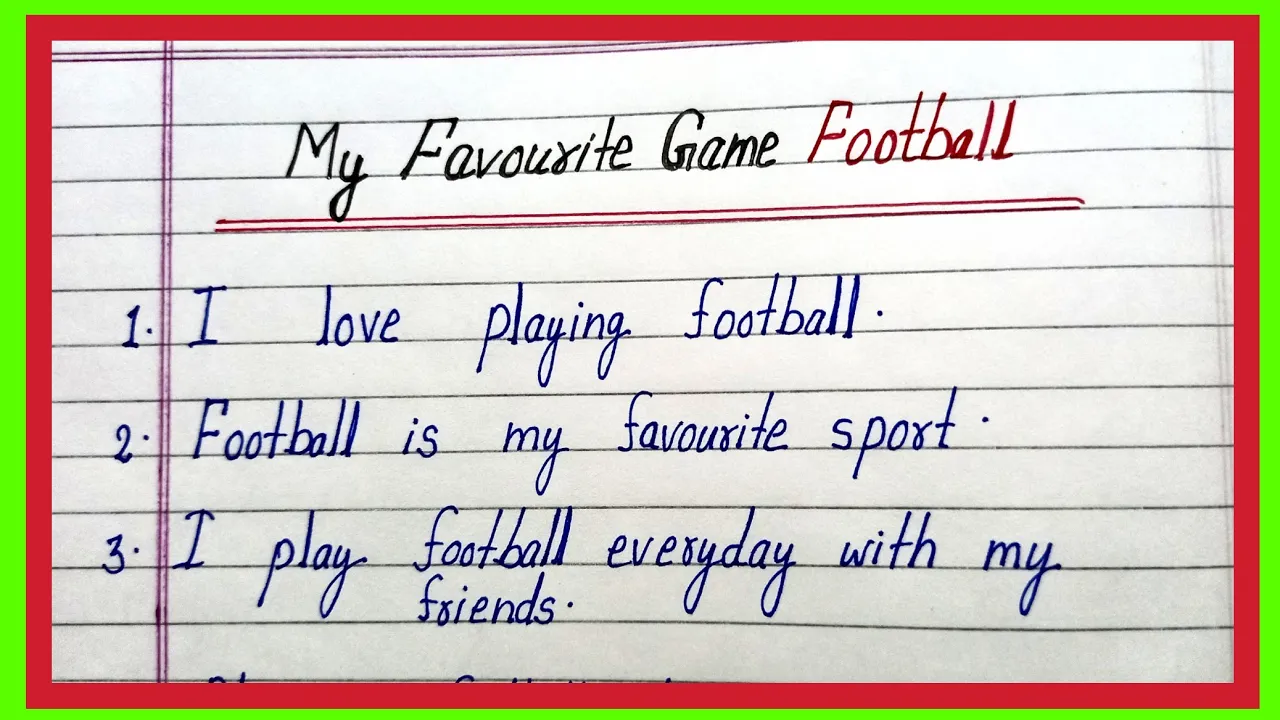 My Favourite Game Football
1. I love playing football.
2. Football is my favourite sport.
3. I play football everyday with my
friends.